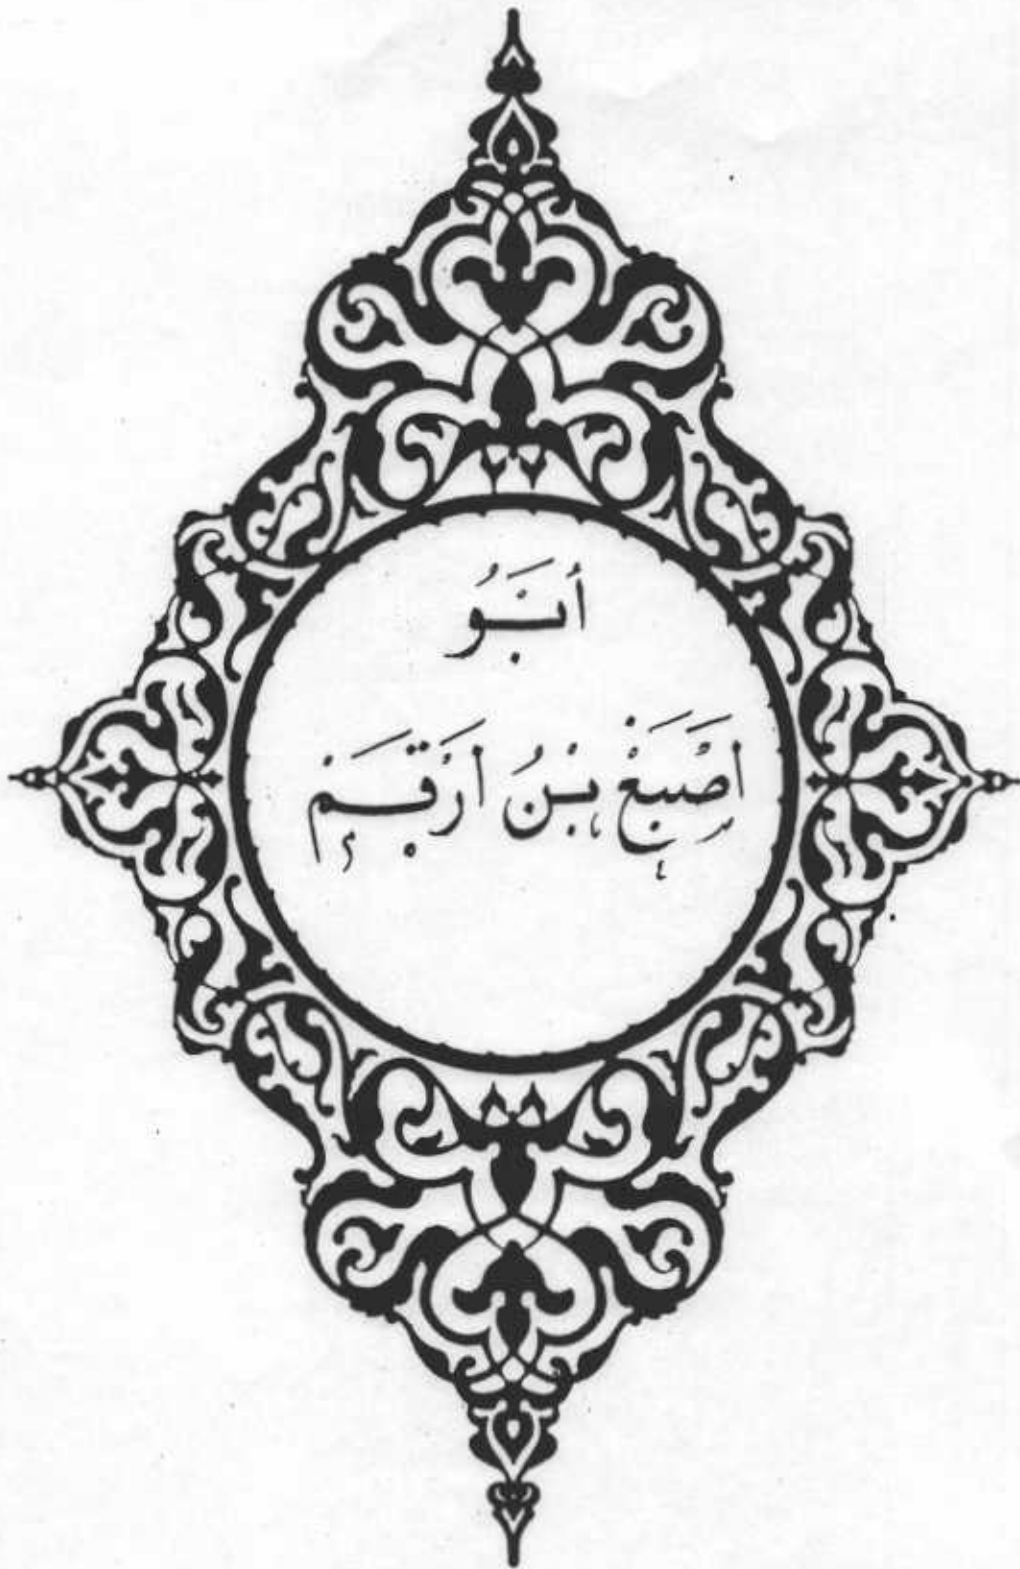 أَبُو
اَصْبَغْ بْنُ اَرْقَمْ